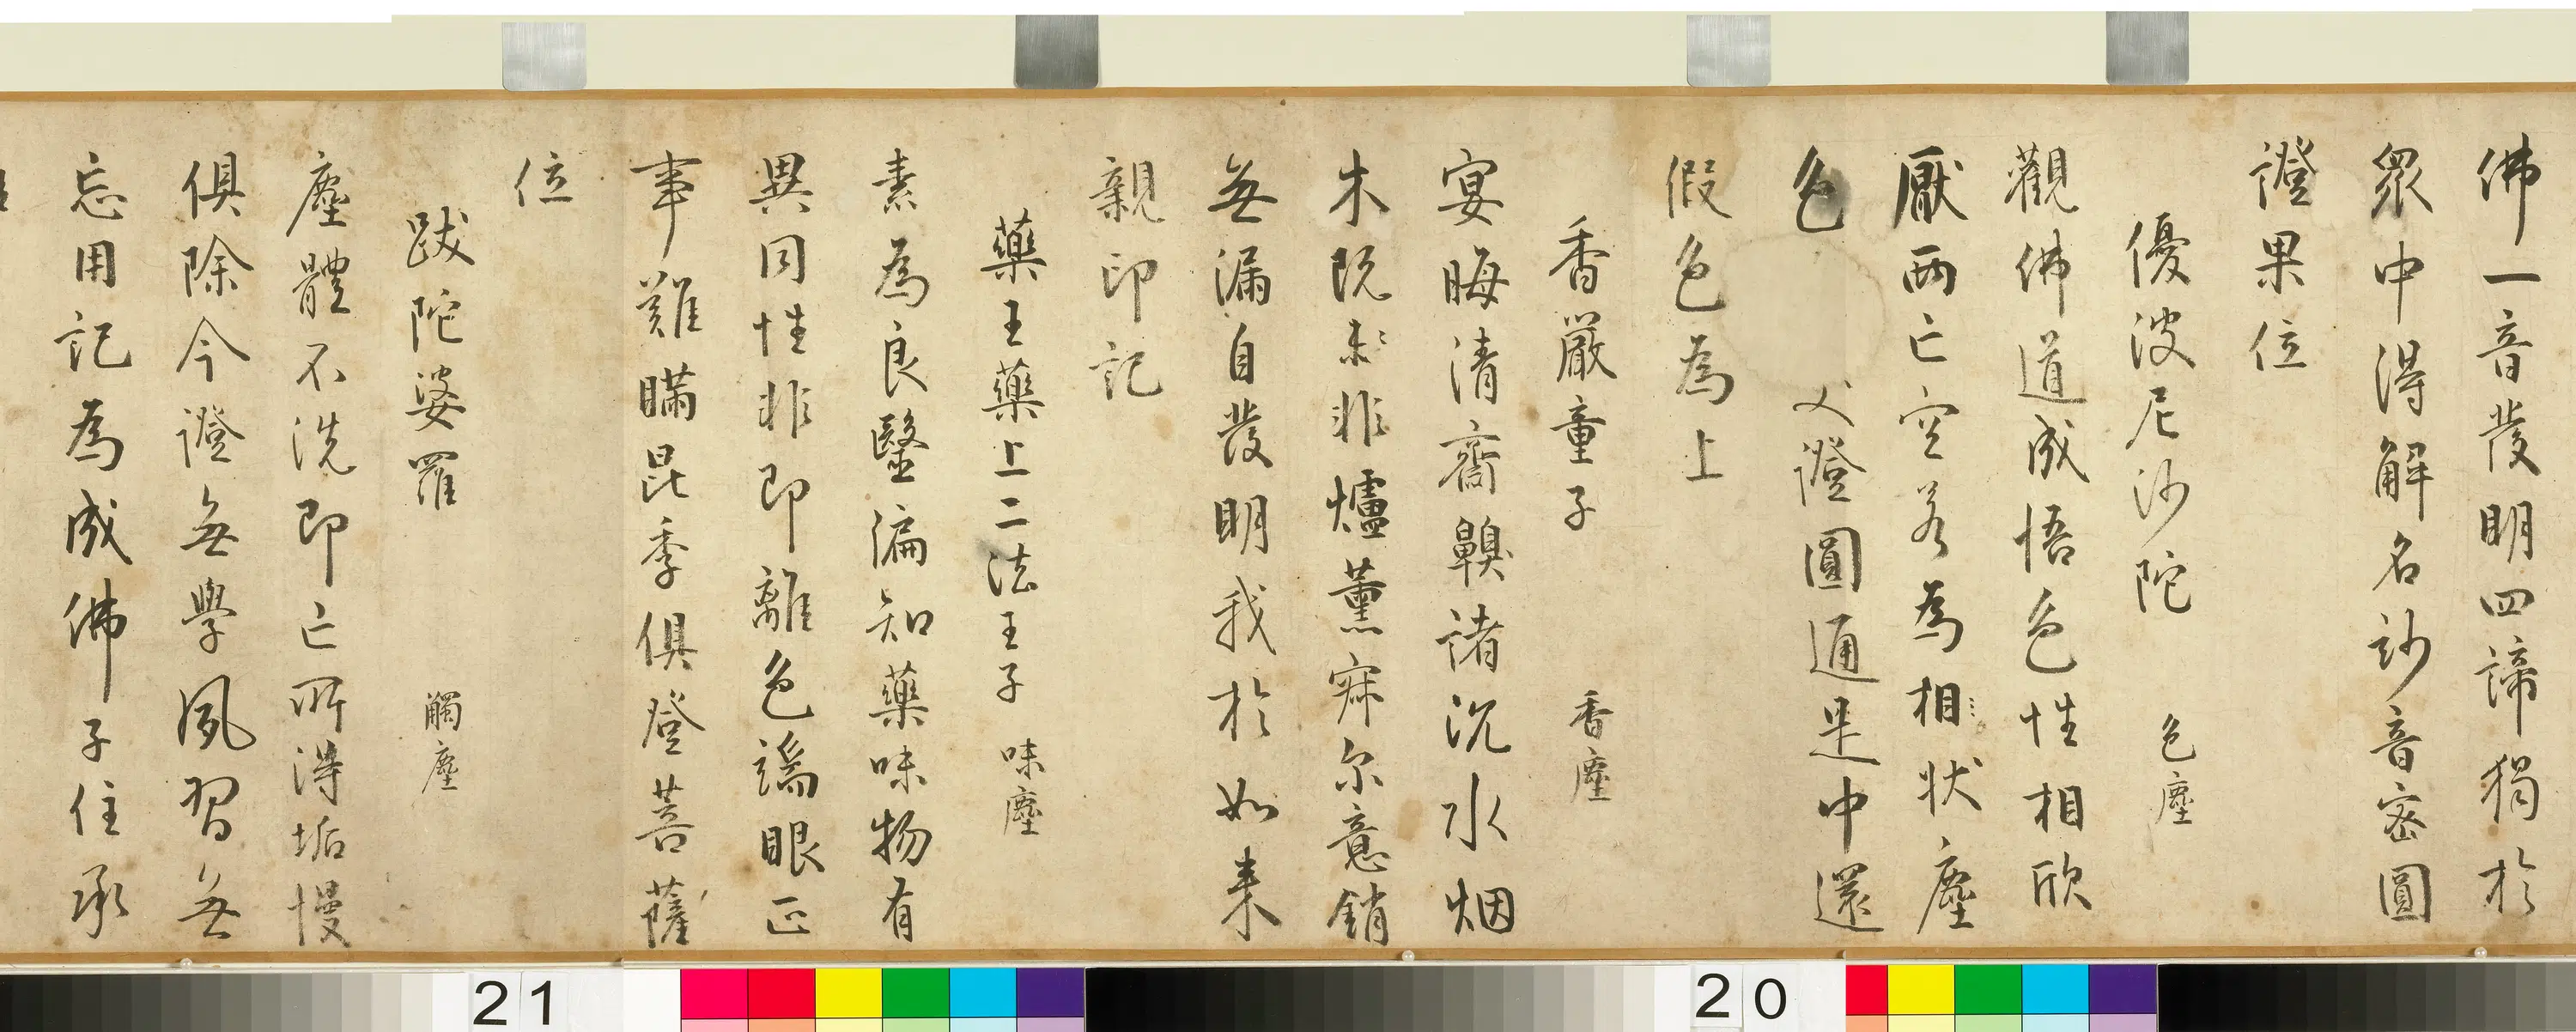 佛一音發明四諦獨於
眾中得解名妙音密圓
證果位
優波尼沙陀 色塵
觀佛道成悟色性相欣
厭兩亡空若為相狀塵
色 父證圓通是中還
假色為上
香嚴童子 香塵
宴晦清齋鼻臭諸沉水烟
木既非爐薰寂尔意銷
無漏自發明我於如来
親印記
藥王藥上二法王子 味塵
素為良醫遍知藥味物有
異同性非即離色謠眼正
事難瞞昆季俱登菩薩
位
跋陀婆羅 觸塵
塵體不洗即亡所得垢慢
俱除今證無學夙習無
忘用記為成佛子住承
21
20